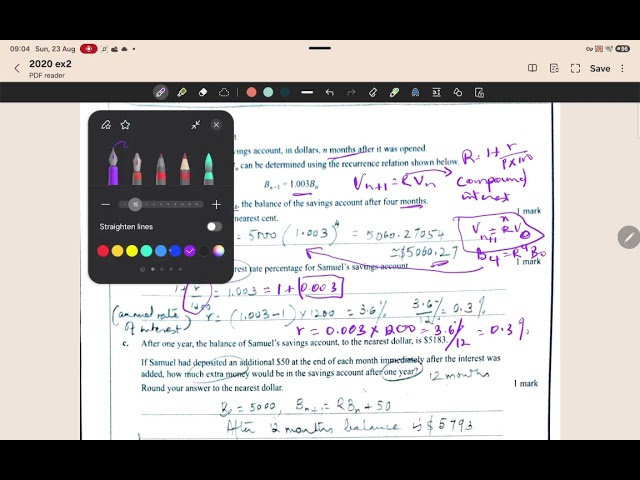 09:04 Sun, 23 Aug
96
2020 ex2
PDF reader
Save
16
Straighten lines
vings account, in dollars, n months after it was opened.
can be determined using the recurrence relation shown below.
R = 1 + r / p x 100
Bn+1 = 1.003Bn
Vn+1 = RVn
compound
interest
the balance of the savings account after four months.
nearest cent.
1 mark
= 5000 (1.003)^4 = 5060.27054
≃ $5060.27
B4 = R^4 B0
erest rate percentage for Samuel's savings account
1 mark
1 + r / 1200 = 1.003 = 1 + 0.003
(annual rate of interest) r = (1.003 - 1) x 1200 = 3.6% 3.6% / 12 = 0.3%
r = 0.003 x 1200 = 3.6 / 12 = 0.3%
c. After one year, the balance of Samuel's savings account, to the nearest dollar, is $5183.
If Samuel had deposited an additional $50 at the end of each month immediately after the interest was
added, how much extra money would be in the savings account after one year?
12 months
Round your answer to the nearest dollar.
1 mark
B0 = 5000, Bn+1 = RBn + 50
After 12 months balance is $5793